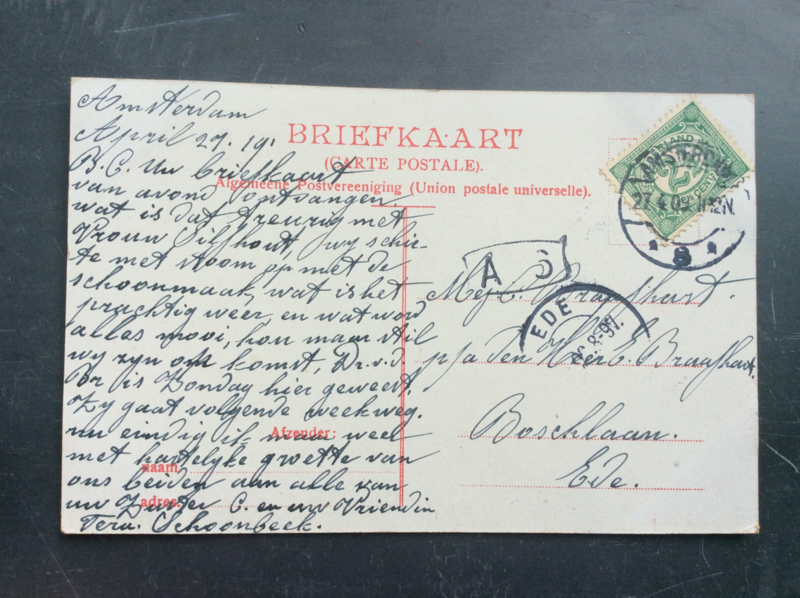 Amsterdam
April 27. 19.
B. C. Uw briefkaart
van avond ontvangen.
wat is dat treurig met
Vrouw wy schie-
te met stoom op met de
schoonmaak, wat is het
prachtig weer, en wat word
alles mooi, hou maar stil
wy zyn ook komst, Dr. v. d.
Br is Zondag hier geweest.
Zy gaat volgende week weg.
nu eindig ik weer weel
met hartelyke groette van
ons beiden aan alle van
uw Zuster C. en uw Vriendin
Schoonbeek.
BRIEFKAART
(CARTE POSTALE).
Algemeene Postvereeniging (Union postale universelle).
Afzender:
naam
adres
AMSTERDAM
27.4.09 11-12V.
8
2½
CENT
A 5
EDE
Mej. C. Braafhart.
p/a den Heer E. Braafhart.
Boschlaan.
Ede.